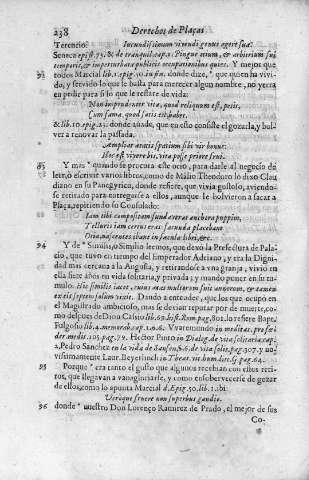 238 Derechos de Plaças
Terencio: Iucundissimum vivendi genus agere sua:
Seneca epist.73. & de tranquil.cap.1. Pingue otium, & arbitrium sui
temporis, & imperturbata publicis occupationibus quies. Y mejor que
92 todos Marcial lib.1.epig. 10. in fin. donde dize, que quien ha vivi-
do, y servido lo que le basta para merecer algun nombre, no yerra
en pedir para si lo que le resta de vida:
Non imprudenter vita, quod reliquum est, petit,
Cum sama, quod satis est habet.
& lib.10.epig.23. donde añade, que en esto consiste el gozarla, y bol-
ver a renovar la passada.
Ampliat ætatis spatium sibi vir bonus:
Hoc est vivere bis, vita posse priore frui.
Y mas quando se procura este ocio, para darle al negocio de
leer, o escrivir varios libros, como de Malio Theodoro lo dixo Clau
diano en su Panegyrico, donde refiere, que vivia gustoso, aviendo-
se retirado para entregarse a ellos, aunque le bolvieron a sacar a
Plaça, repitiendo su Consulado:
Iam tibi compositam fundaverat anchora puppim,
Telluris iam certus eras: facunda placebant
Otia, nascentes ibant in sæcula libri, &c.
94 Y de Similis, o Similio leemos, que dexò la Prefectura de Pala-
cio, que tuvo en tiempo del Emperador Adriano, y era la Digni-
dad mas cercana a la Augusta, y retirandose a vna granja, vivio en
ella siete años en vida solitaria, y privada, y mando poner en su tu-
mulo. Hic Similis iacet, cuius ætas multorum fuit annorum, & tamen
ex eis septem solum vixit. Dando a entender, que los que ocupò en
el Magistrado ambicioso, mas se devian reputar por de muerte, co-
mo despues de Dion Casio lib.69. hist. Rom. pag.802. lo refiere Bapt.
Fulgosio lib.4.memorab.cap.1.
der medit. 105. pag.79. Hector Pinto in Dialog. de vita solitaria cap.
2. Pedro Sanchez en la vida de
visimamente Laur. Beyerlinch in Theat. vit. hum. lit. G. pag. 64.
95 Porque era tanto el gusto que algunos recebian con estos retiros,
que llegavan a vanagloriarse, y como ensobervecerse de gozar
de ellos, como lo apunta Marcial
Vtroque fruere non superbus gaudio.
96 donde nuestro Don Lorenço Ramirez de Prado, el mejor de sus
Co-